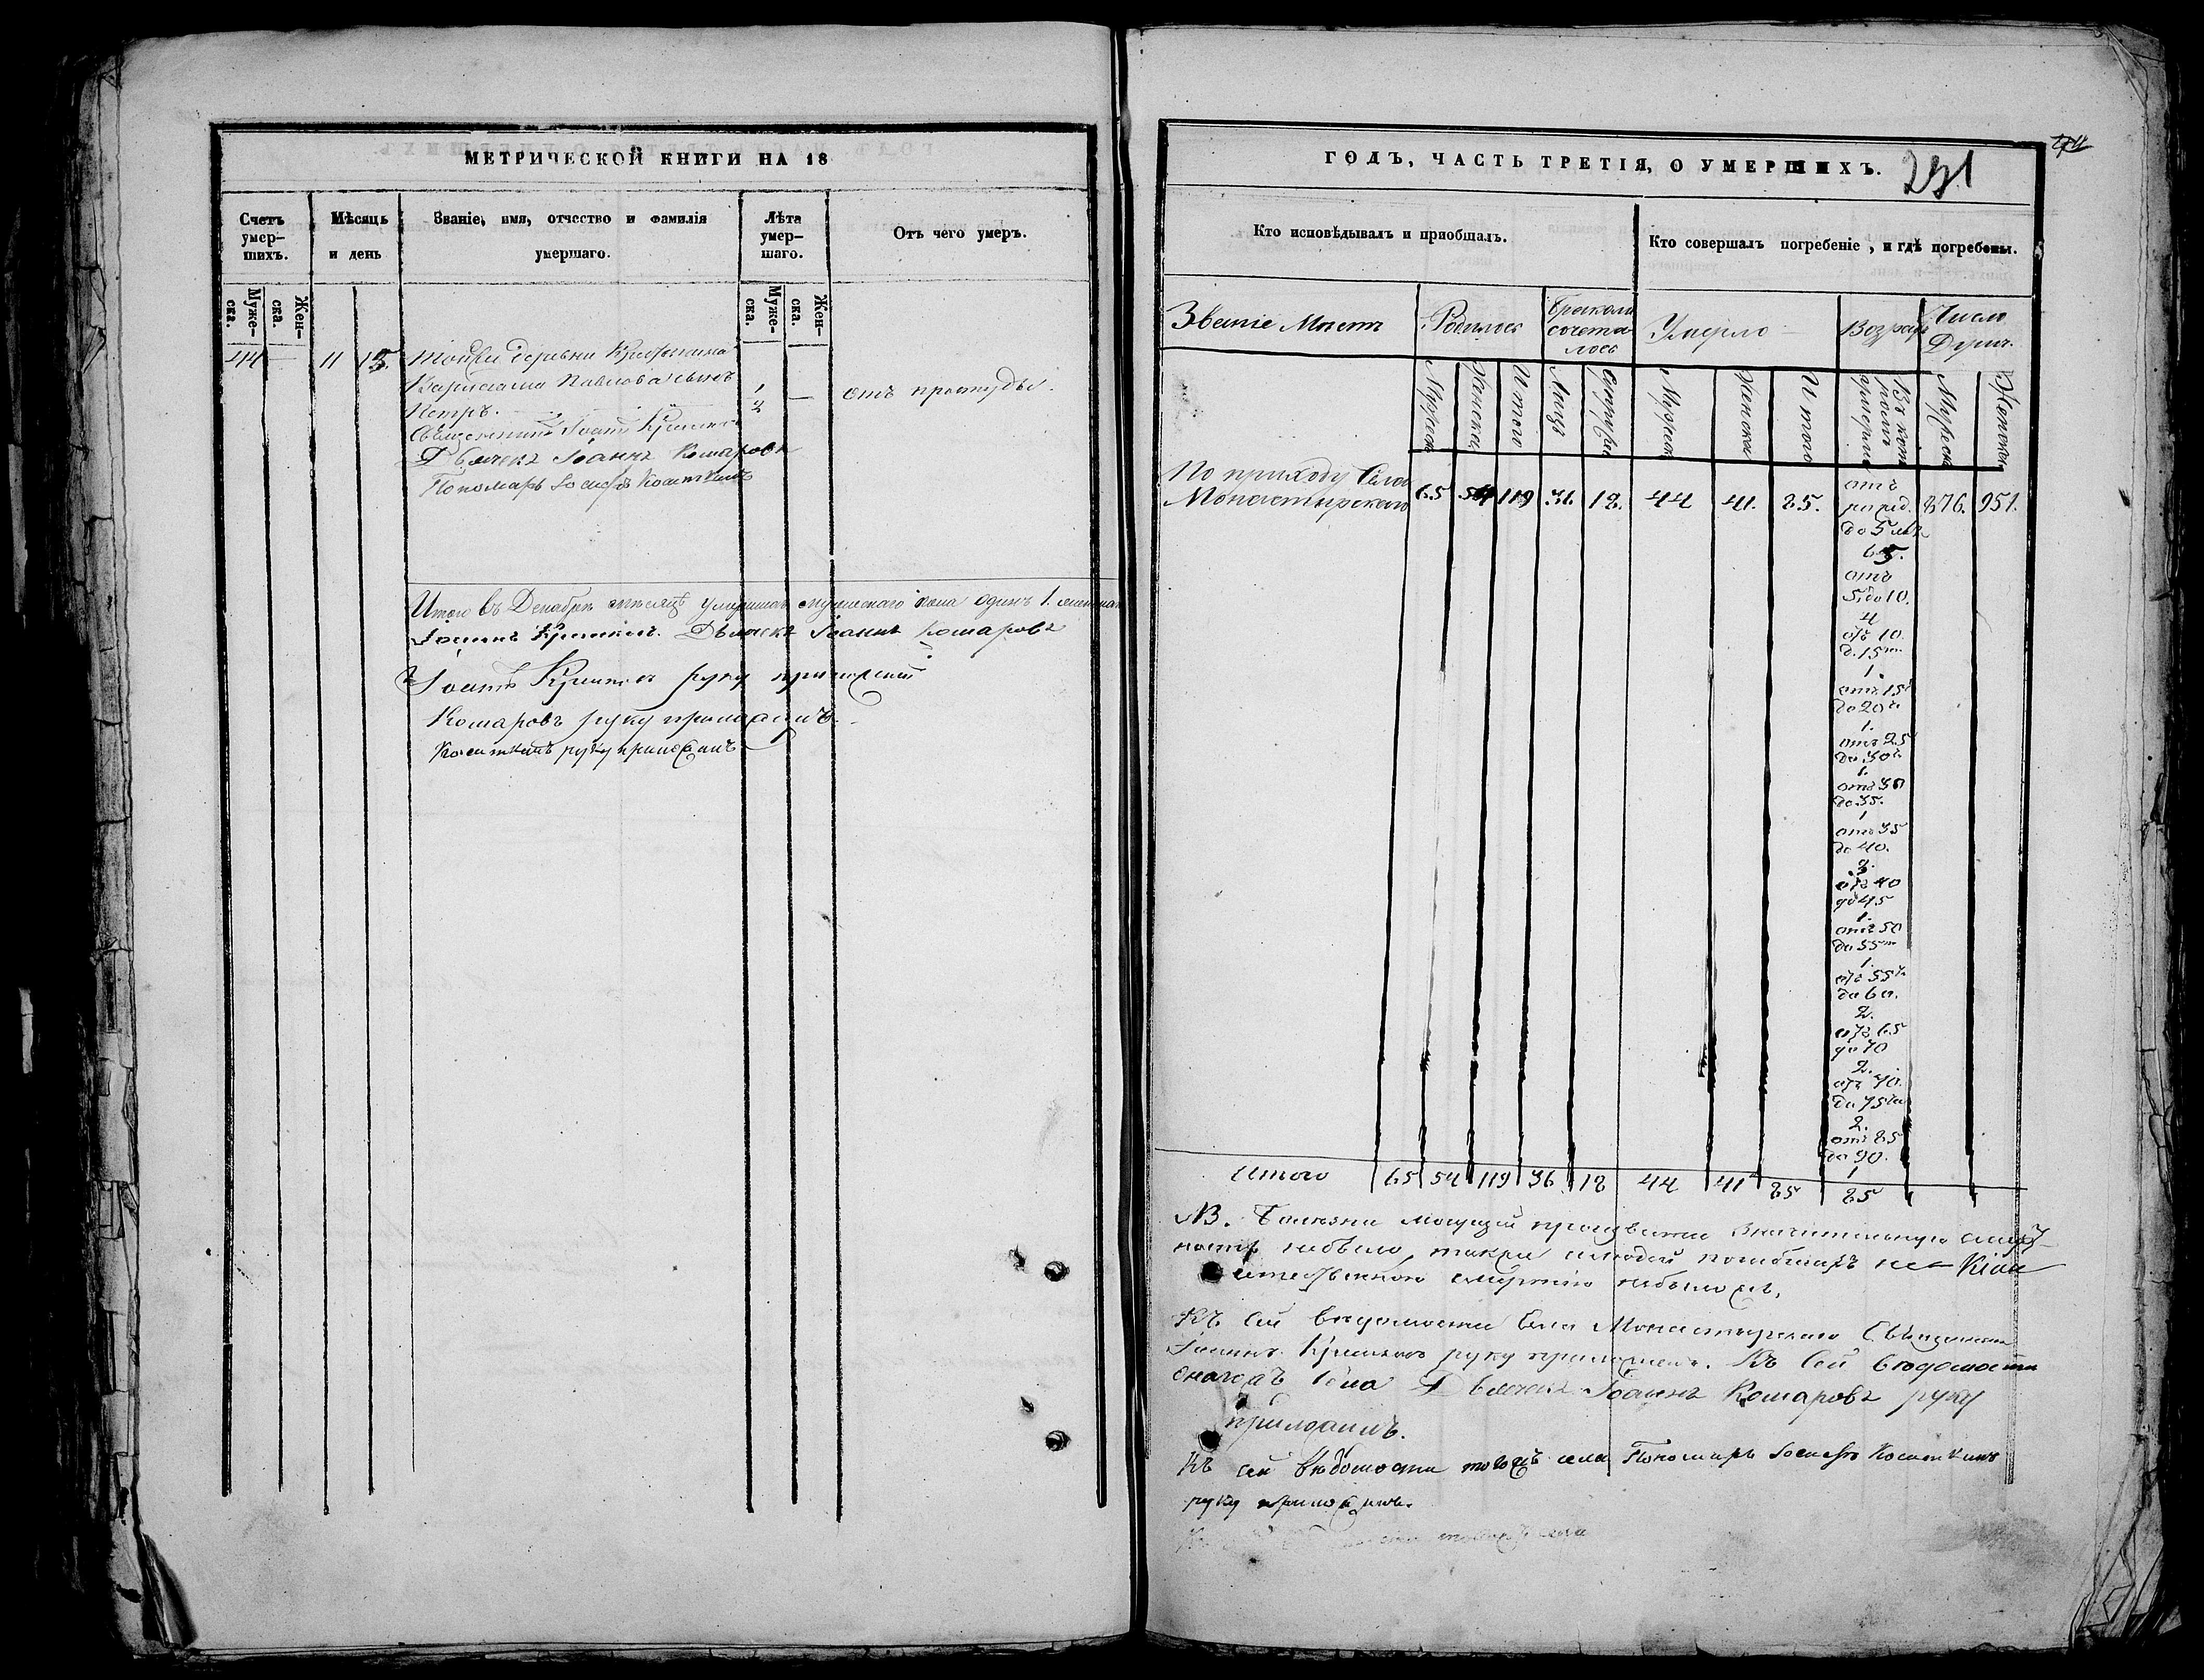 МЕТРИЧЕСКОЙ КНИГИ НА 18
Счетъ умер-шихъ.
Мѣсяцъ и день
Званіе, имя, отчество и фамилія умершаго.
Лѣта умер-шаго.
Отъ чего умеръ.
Муже-ска.
Жен-ска.
Муже-ска.
Жен-ска.
44 — 11 13. Тойже деревни
Павлова сынъ
Петръ. 1/2 — отъ простуды.
Священникъ Іоаннъ
Дьячекъ Іоаннъ Комаровъ
Пономарь Іосифъ
Итого въ Декабрѣ мѣсяцѣ умершихъ мужескаго пола одинъ 1.
Іоаннъ Дьячекъ Іоаннъ Комаровъ
Іоаннъ руку приложилъ
Комаровъ руку приложилъ.
руку приложилъ
ГОДЪ, ЧАСТЬ ТРЕТІЯ, О УМЕРШИХЪ.
291
Кто исповѣдывалъ и пріобщалъ.
Кто совершалъ погребеніе, и гдѣ погребены.
Званіе Мѣстъ
Родилось
Бракомъ сочета-лось
Умерло
Возрастъ
Число Душъ.
Мужеск
Женска
Итого
Лицъ
Супруж
Мужеск
Женска
Итого
Мужеск
Женска
По приходу Села
Монастырскаго 65 54 119 36. 18. 44 41. 85. 876. 951.
отъ
рожд.
до 5 лѣтъ
65.
отъ
5. до 10.
4
отъ 10.
д. 15
1.
отъ 15
до 20
1.
отъ 25
до 30
1.
отъ 30
до 35.
1
отъ 35
до 40.
3.
отъ 40
до 45
1.
отъ 50
до 55
1.
отъ 55
до 60.
2.
отъ 65
до 70
2.
отъ 70.
до 75
2.
отъ 85
до 90.
1
Итого 65 54 119 36 18 44 41 85 85
NB. Болѣзни могущей произвести значительную смерт-
ность небыло, также и людей погибшихъ не-
естественною смертію небылось.
Къ сей вѣдомости Села Монастырскаго Священникъ
Іоаннъ руку приложилъ. Къ сей вѣдомости
онагожъ села Дьячекъ Іоаннъ Комаровъ руку
приложилъ.
Къ сей вѣдомости тогожъ села Пономарь Іосифъ
руку приложилъ.